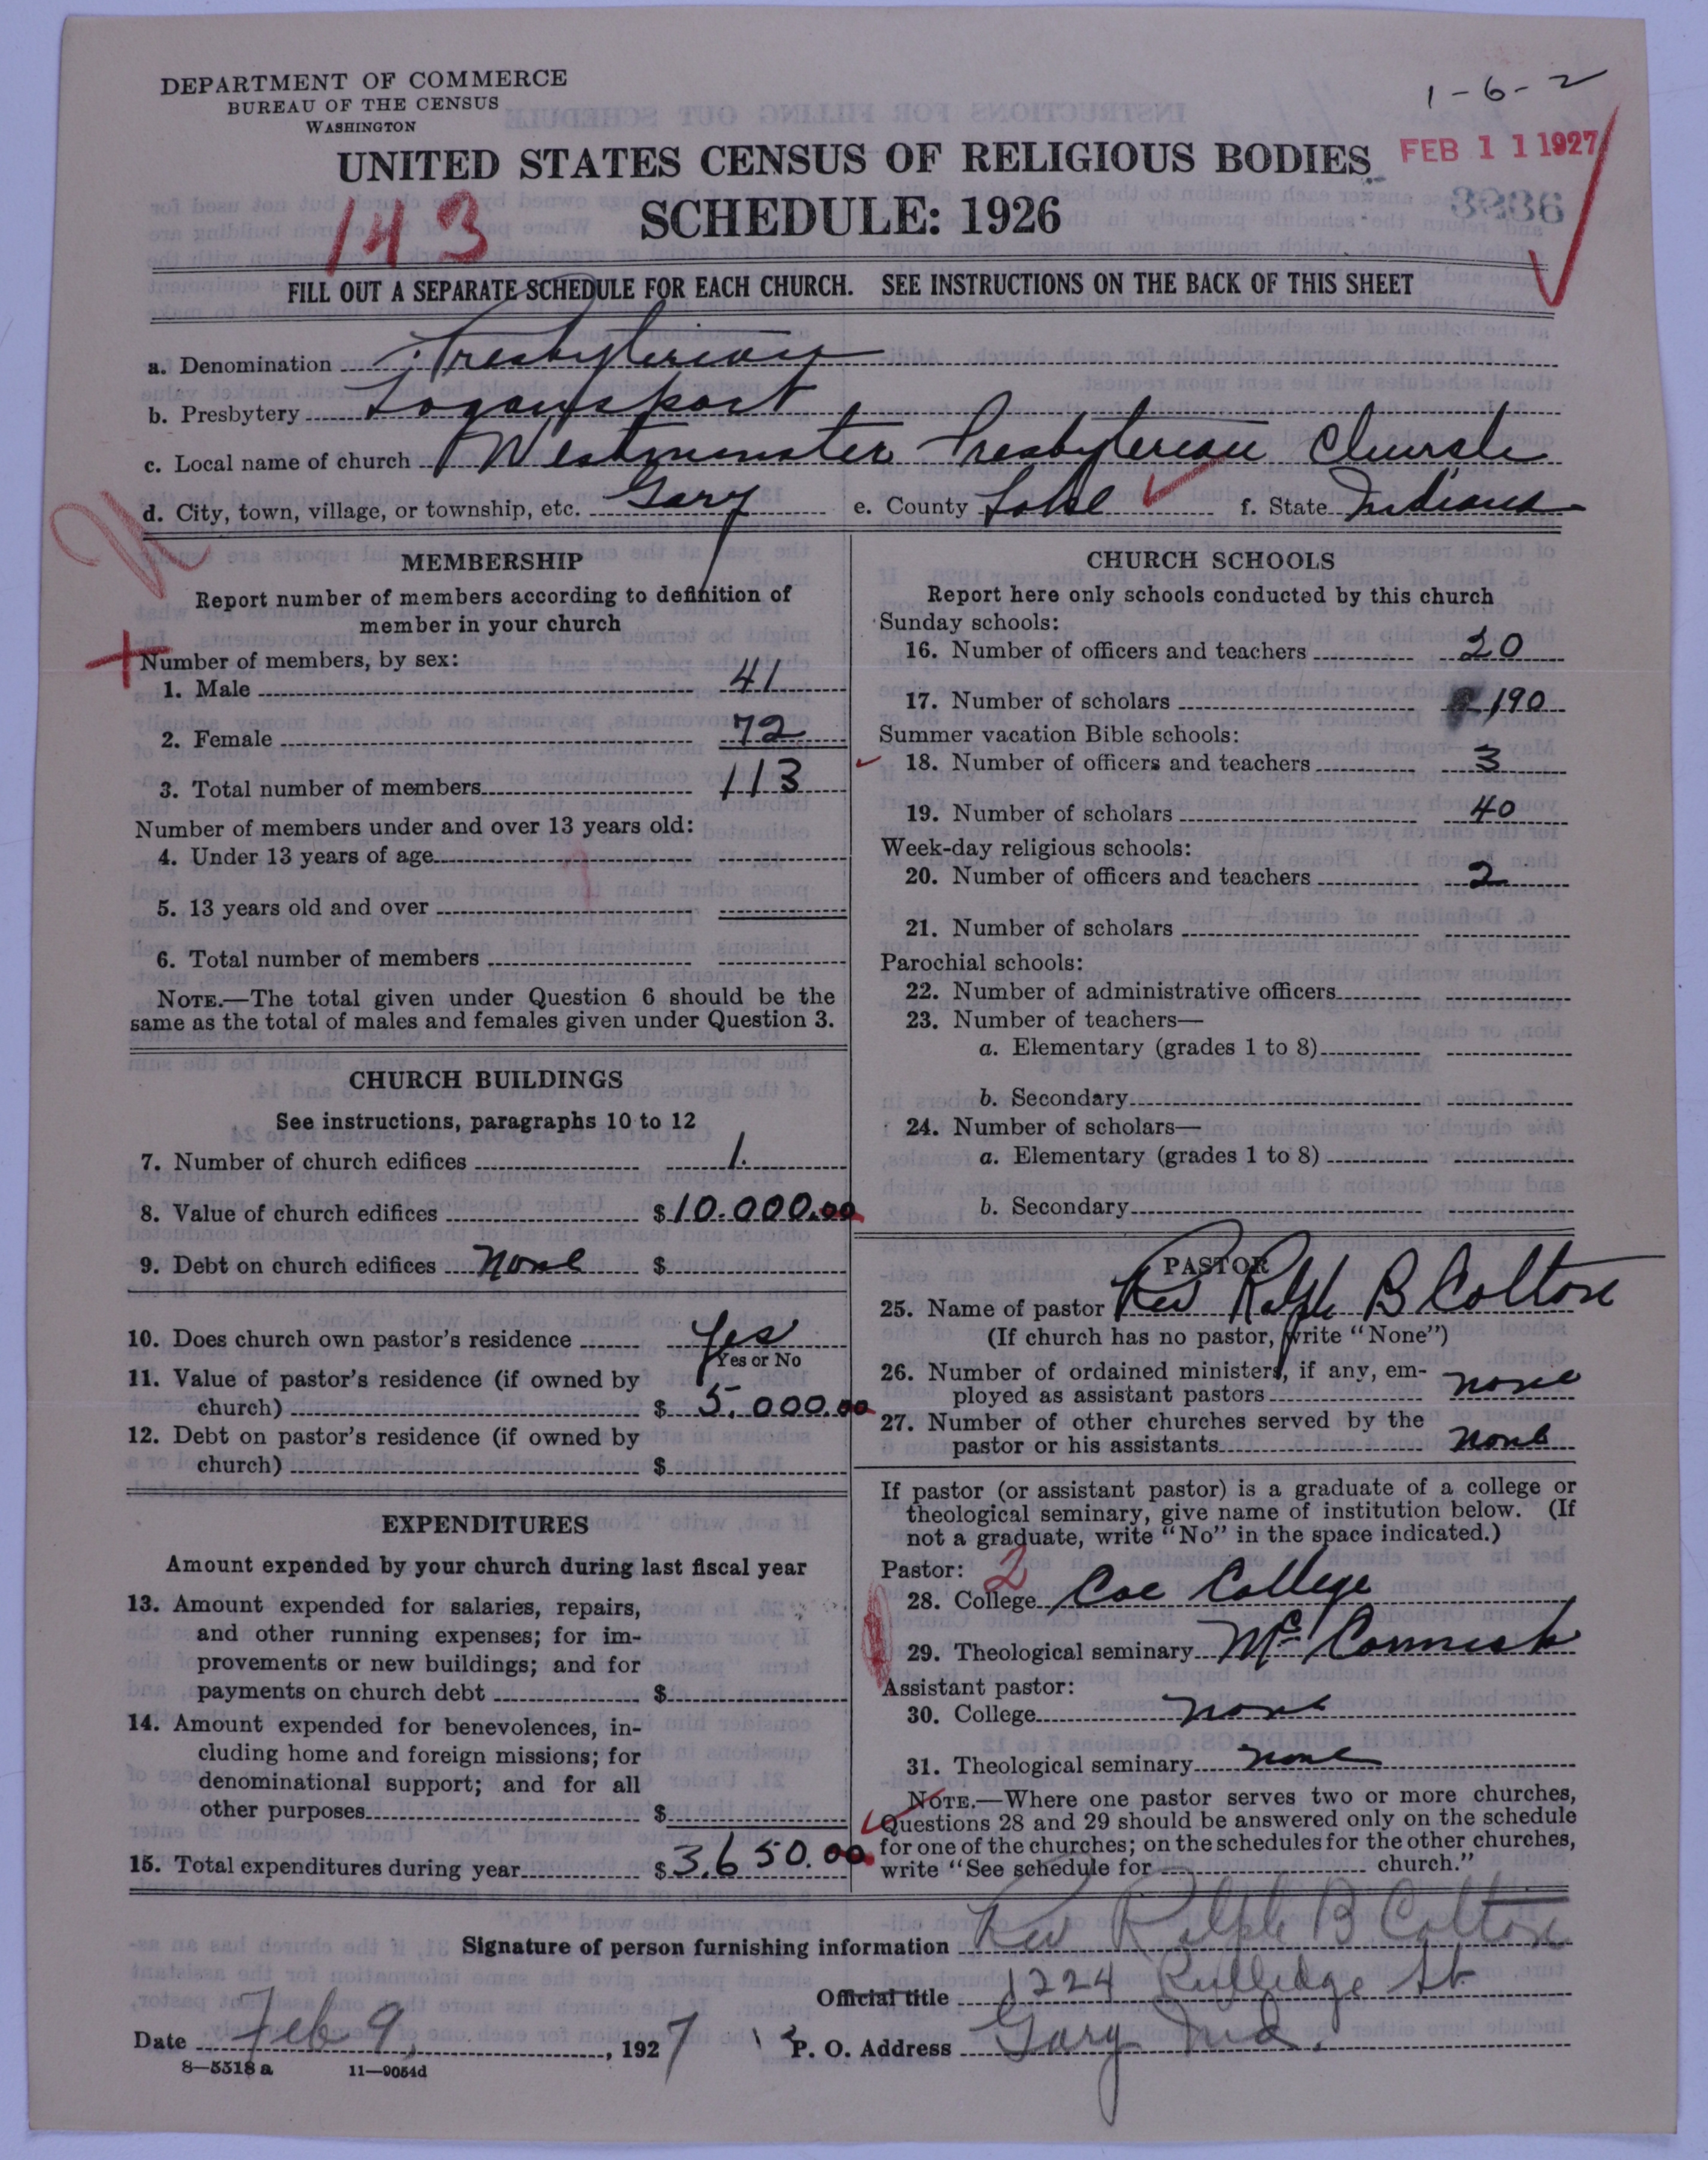 DEPARTMENT OF COMMERCE
BUREAU OF THE CENSUS
WASHINGTON
1-6-2
UNITED STATES CENSUS OF RELIGIOUS BODIES
FEB 11 1927
SCHEDULE: 1926
143
FILL OUT A SEPARATE SCHEDULE FOR EACH CHURCH. SEE INSTRUCTIONS ON THE BACK OF THIS SHEET
a. Denomination Presbyterian
b. Presbytery Logansport
c. Local name of church Westminster Presbyterian Church
d. City, town, village, or township, etc. Gary e. County Lake f. State Indiana
MEMBERSHIP
Report number of members according to definition of
member in your church
Number of members, by sex:
1. Male 41
2. Female 72
3. Total number of members 113
Number of members under and over 13 years old:
4. Under 13 years of age
5. 13 years old and over
6. Total number of members
NOTE.—The total given under Question 6 should be the
same as the total of males and females given under Question 3.
CHURCH BUILDINGS
See instructions, paragraphs 10 to 12
7. Number of church edifices 1.
8. Value of church edifices $10.000.00
9. Debt on church edifices none $
10. Does church own pastor's residence Yes
Yes or No
11. Value of pastor's residence (if owned by
church) $ 5.000.00
12. Debt on pastor's residence (if owned by
church) $
EXPENDITURES
Amount expended by your church during last fiscal year
13. Amount expended for salaries, repairs,
and other running expenses; for im-
provements or new buildings; and for
payments on church debt $
14. Amount expended for benevolences, in-
cluding home and foreign missions; for
denominational support; and for all
other purposes $
15. Total expenditures during year $3,650.00
CHURCH SCHOOLS
Report here only schools conducted by this church
Sunday schools:
16. Number of officers and teachers 20
17. Number of scholars 190
Summer vacation Bible schools:
18. Number of officers and teachers 3
19. Number of scholars 40
Week-day religious schools:
20. Number of officers and teachers 2
21. Number of scholars
Parochial schools:
22. Number of administrative officers
23. Number of teachers—
a. Elementary (grades 1 to 8)
b. Secondary
24. Number of scholars—
a. Elementary (grades 1 to 8)
b. Secondary
PASTOR
25. Name of pastor Rev Ralph B Colton
(If church has no pastor, write "None")
26. Number of ordained ministers, if any, em-
ployed as assistant pastors none
27. Number of other churches served by the
pastor or his assistants none
If pastor (or assistant pastor) is a graduate of a college or
theological seminary, give name of institution below. (If
not a graduate, write "No" in the space indicated.)
Pastor: 2
28. College Coe College
29. Theological seminary McCormick
Assistant pastor:
30. College none
31. Theological seminary none
NOTE.—Where one pastor serves two or more churches,
Questions 28 and 29 should be answered only on the schedule
for one of the churches; on the schedules for the other churches,
write "See schedule for church."
Signature of person furnishing information Rev Ralph B Colton
Official title 1224 Rutledge St
Date Feb 9, 1927 P. O. Address Gary Ind.
8—5518 a 11—9054d